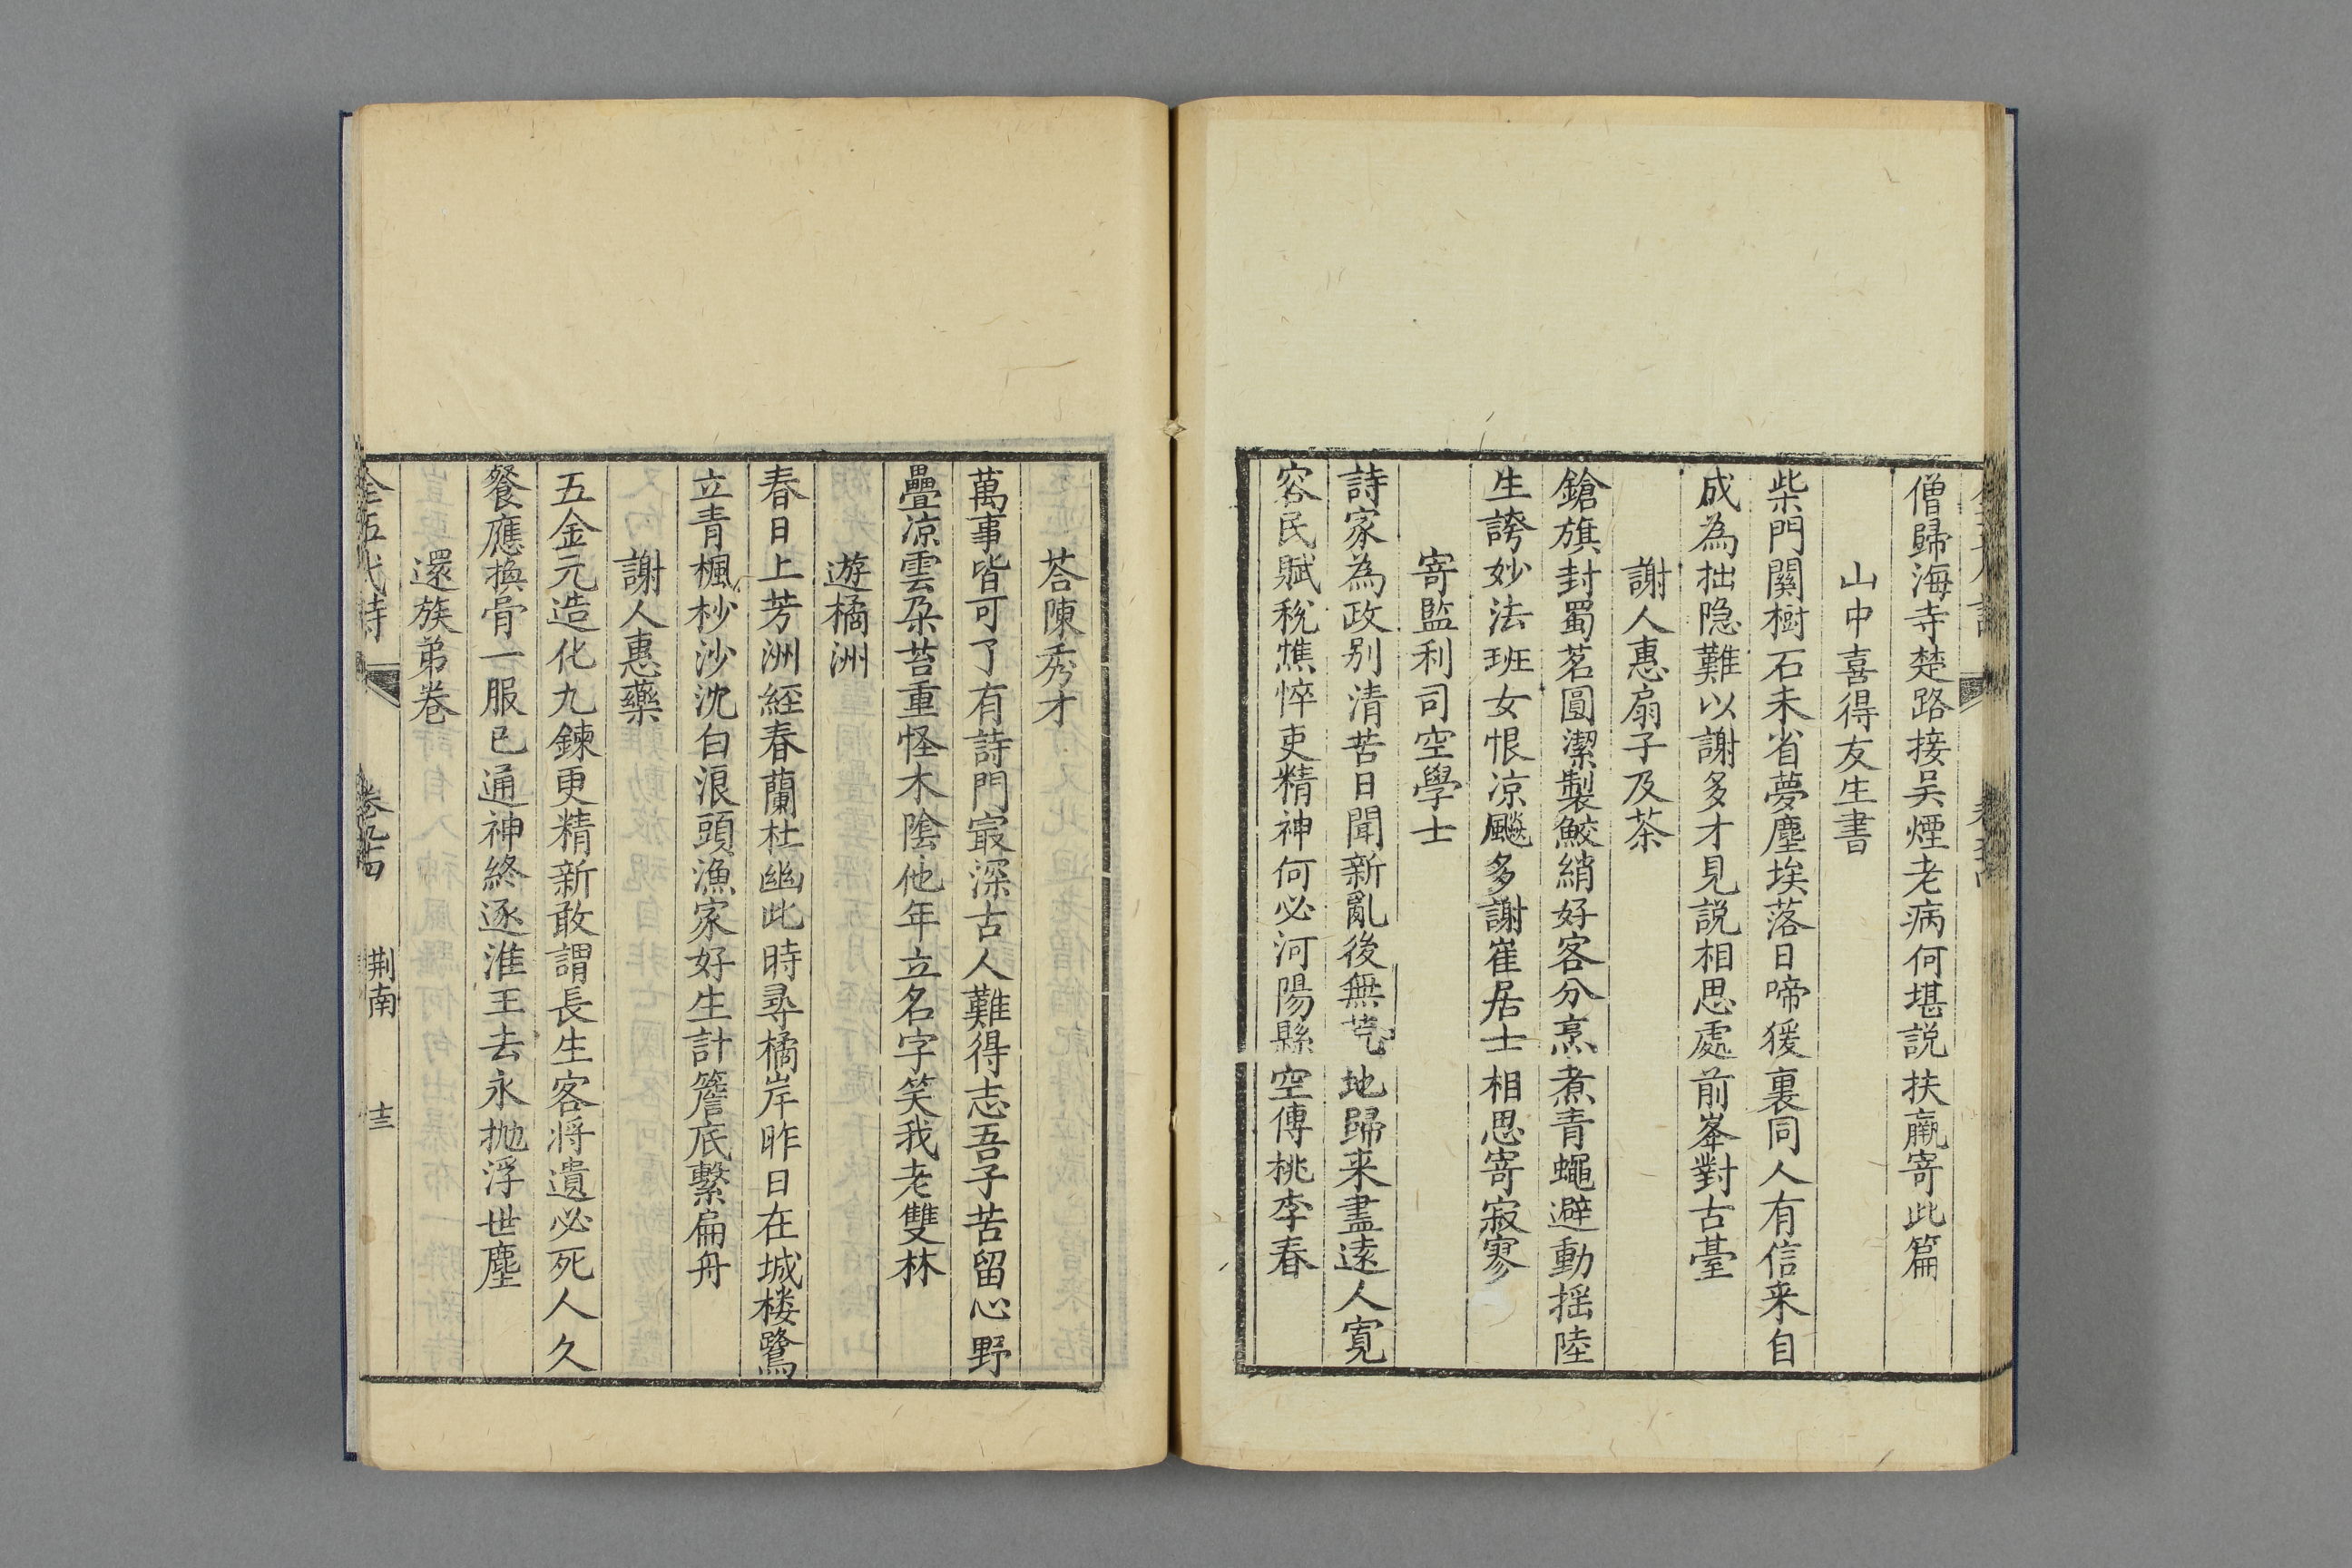 僧歸海寺楚路接吴煙老病何堪説扶羸寄此篇
山中喜得友生書
柴門關樹石未省夢塵埃落日啼猨裏同人有信来自
成為拙隐難以謝多才見説相思處前峯對古臺
謝人惠扇子及茶
鎗旗封蜀茗圓潔製鮫綃好客分烹煮青蠅避動揺陸
生誇妙法班女恨凉飈多謝崔居士相思寄寂寥
寄監利司空學士
詩家為政别清苦日聞新亂後無荒地歸来盡逺人寛
容民賦税憔悴吏精神何必河陽縣空傳桃李春
荅陳秀才
萬事皆可了有詩門冣深古人難得志吾子苦留心野
疊凉雲朶苔重怪木陰他年立名字笑我老雙林
遊橘洲
春日上芳洲經春蘭杜幽此時尋橘岸昨日在城楼鷺
立青楓杪沙沈白浪頭漁家好生計簷底繫扁舟
謝人惠藥
五金元造化九鍊更精新敢謂長生客将遺必死人久
餐應換骨一服已通神終逐淮王去永拋浮世塵
還族弟卷
全五代詩
荆南
十三